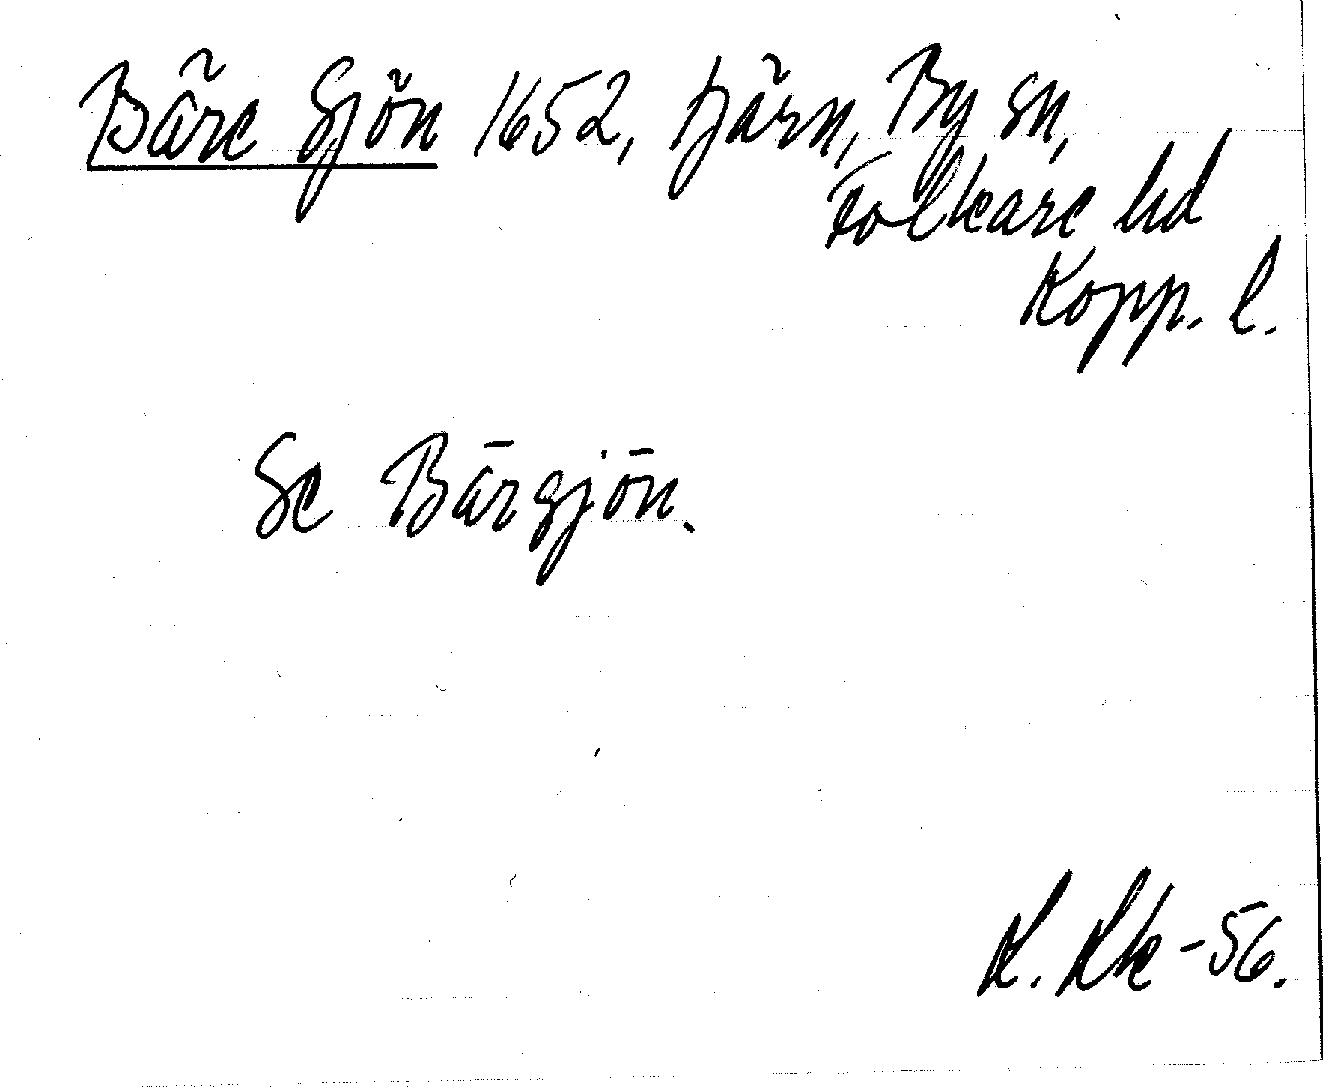 Bäre Sjön 1652, tjärn, By sn,
Folkare hd
Kopp. l.
Se Bärsjön.
-56.